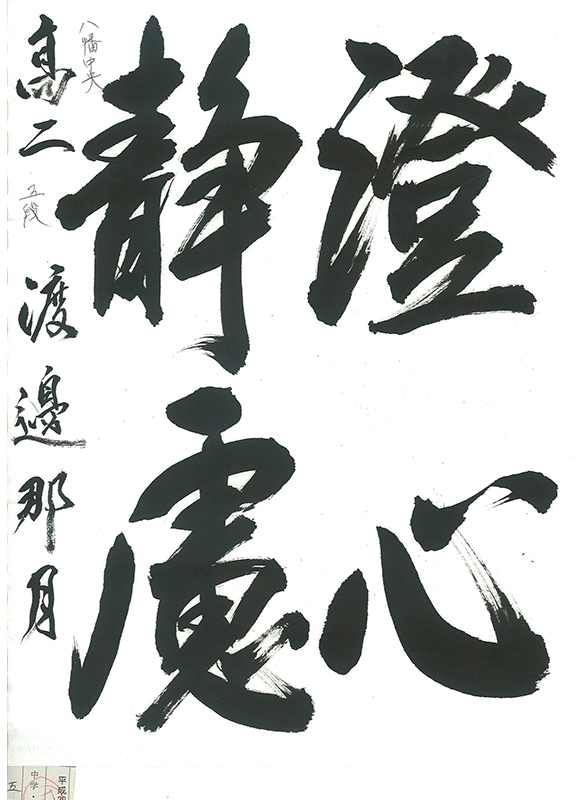 澄心
静慮
八幡中央
高二 五段 渡邉那月
平成
中学・
五